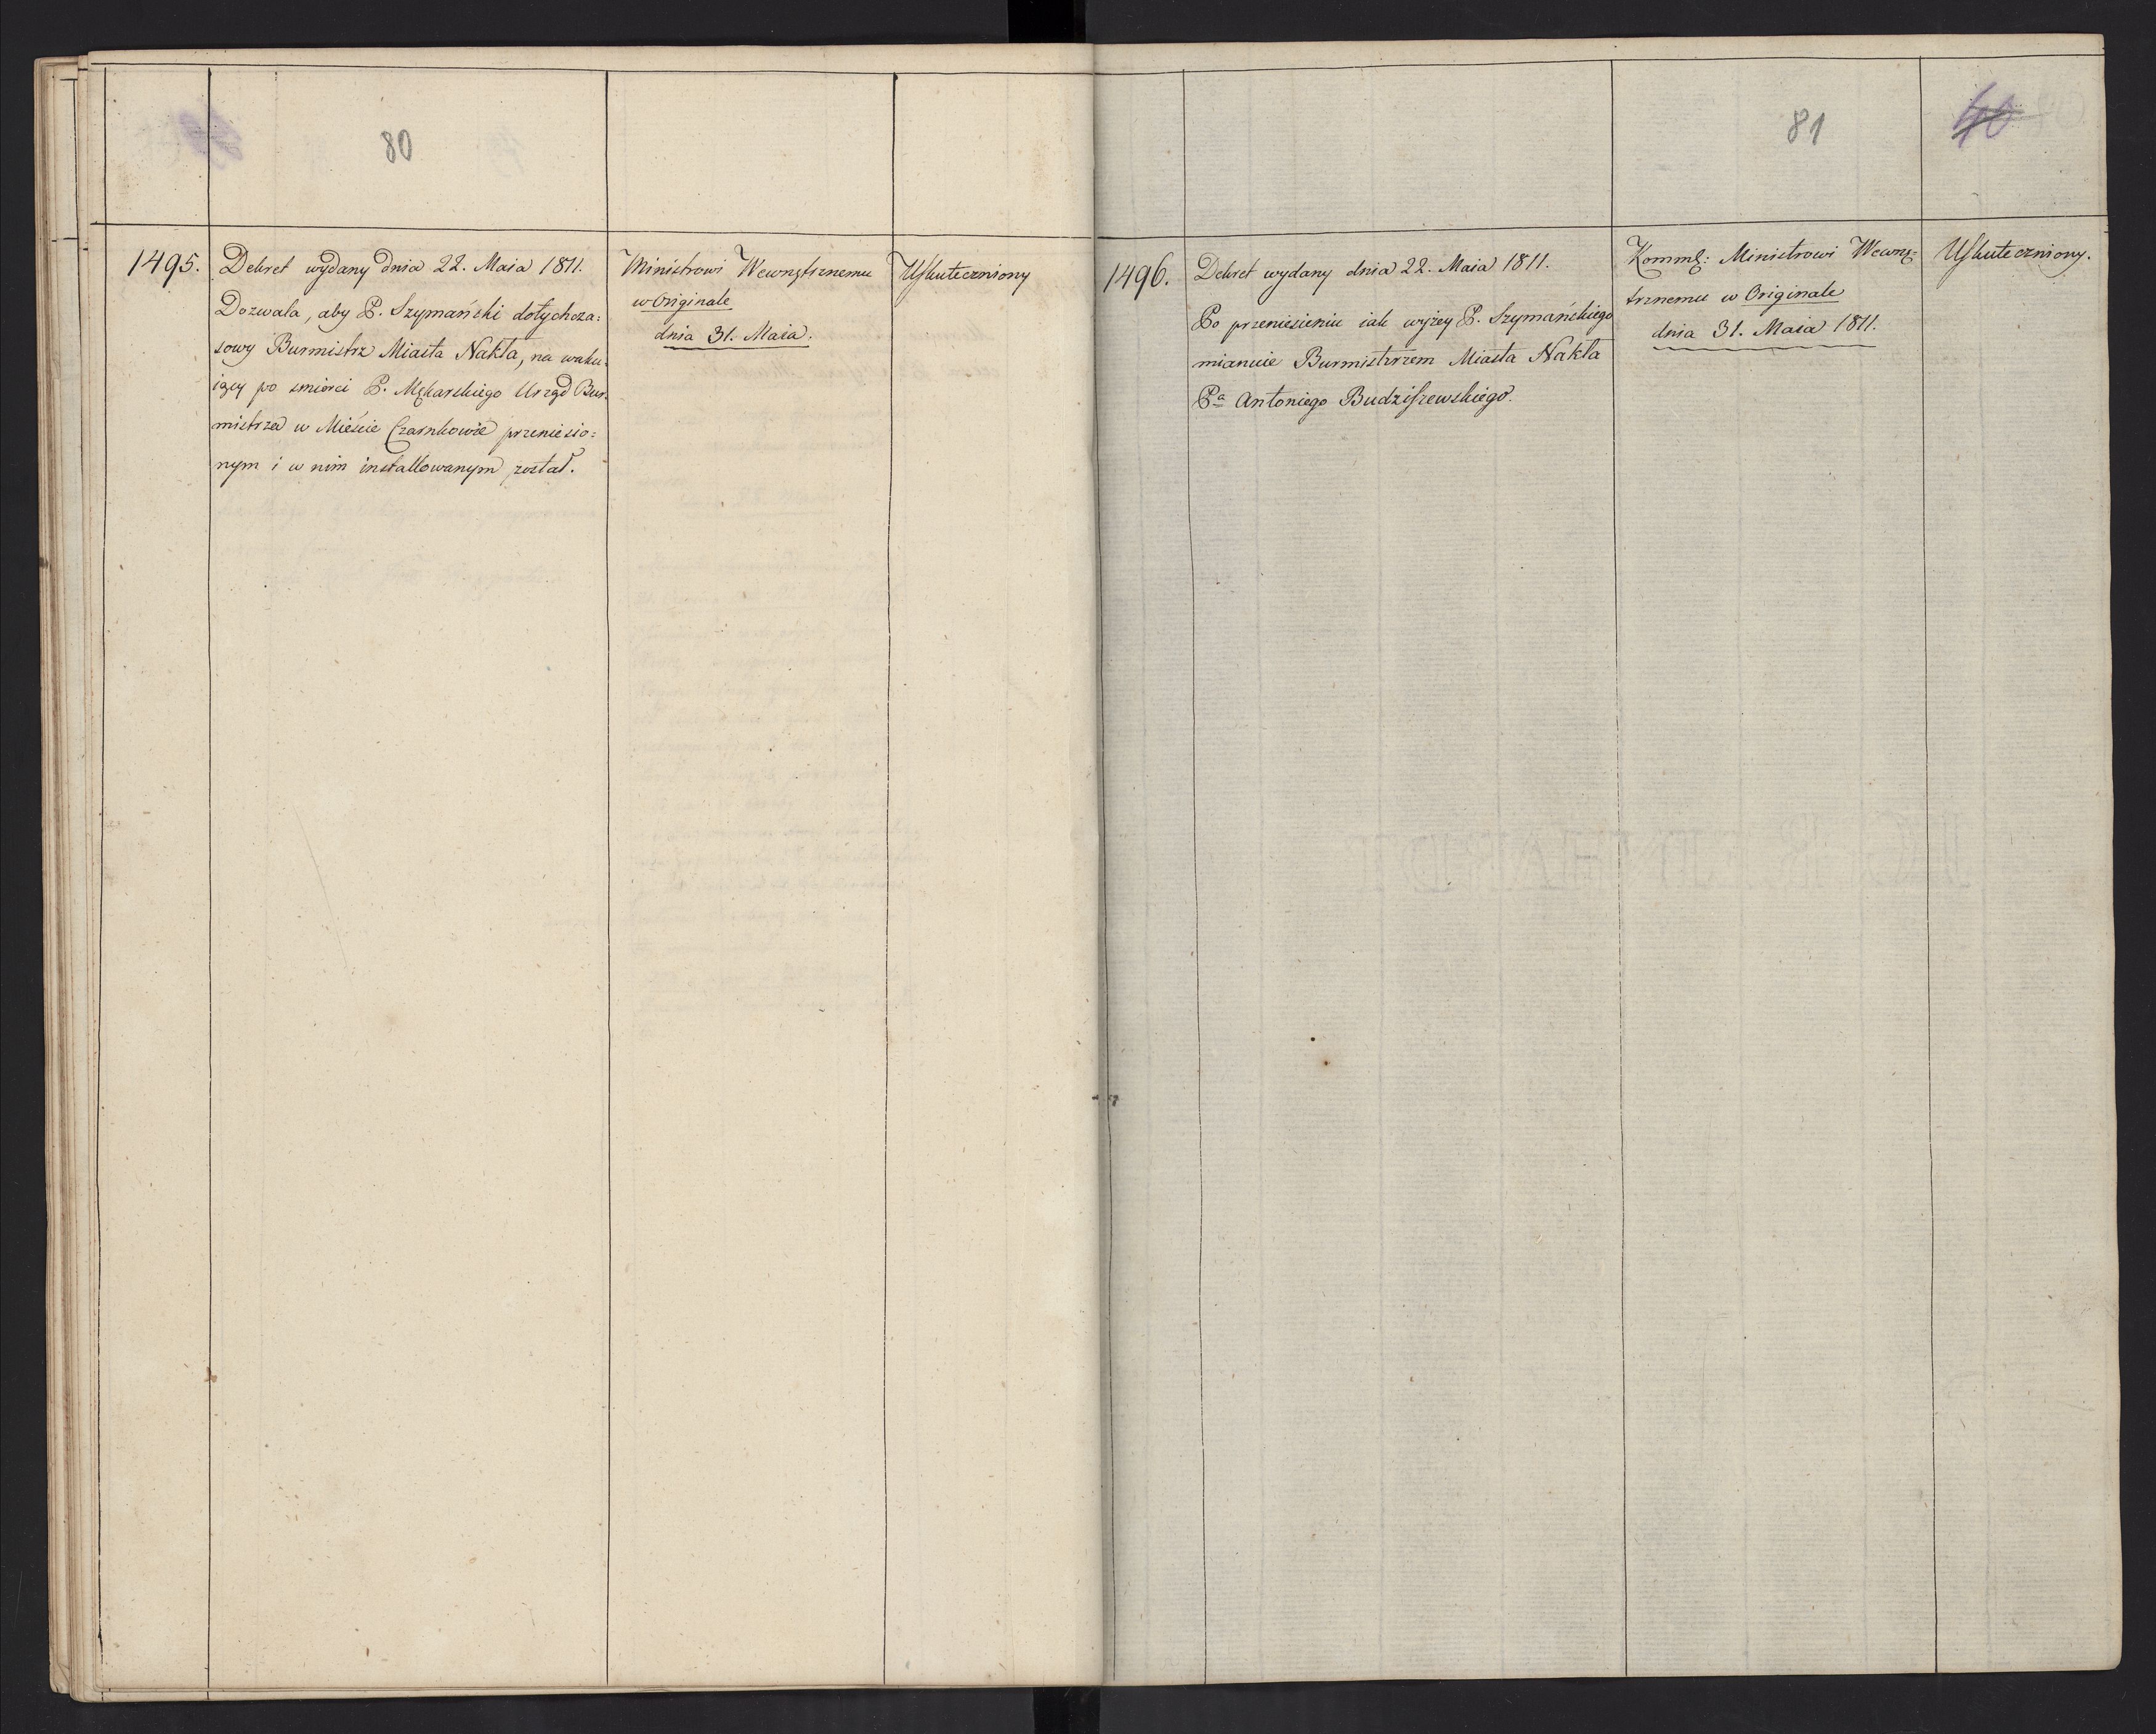 80
1495.
Dekret wydany dnia 22. Maia 1811.
Dozwala, aby P. Szymański dotychcza:
sowy Burmistrz Miasta Nakła, na waku:
iący po smierci P. Mękarskiego Urząd Bur:
mistrza w Mieście Czarnkowie przeniesio:
nym i w nim installowanym został.
Ministrowi Wewnętrznemu
w Originale
dnia 31. Maia.
Uskuteczniony
81
40
1496.
Dekret wydany dnia 22. Maia 1811.
Po przeniesieniu iak wyżey P. Szymańskiego
mianuie Burmistrzem Miasta Nakła
Pa Antoniego Budziszewskiego.
Kommę: Ministrowi Wewnę:
trznemu w Originale
dnia 31. Maia 1811.
Uskuteczniony.